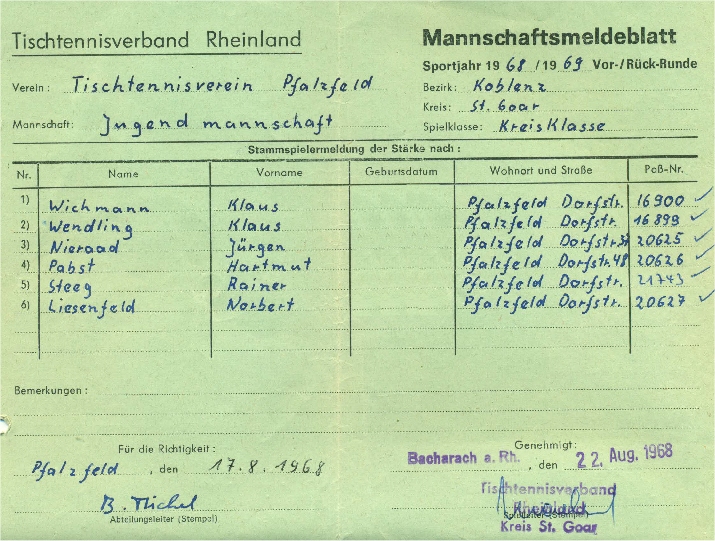 Tischtennisverband Rheinland
Mannschaftsmeldeblatt
Sportjahr 1968/1969 Vor-/Rück-Runde
Verein: Tischtennisverein Pfalzfeld
Bezirk: Koblenz
Kreis: St. Goar
Mannschaft: Jugendmannschaft
Spielklasse: KreisKlasse
Stammspielermeldung der Stärke nach:
Nr. Name Vorname Geburtsdatum Wohnort und Straße Paß-Nr.
1) Wichmann Klaus Pfalzfeld Dorfstr. 16900 ✓
2) Wendling Klaus Pfalzfeld Dorfstr. 16899 ✓
3) Nieraad Jürgen Pfalzfeld Dorfstr. 20625 ✓
4) Pabst Hartmut Pfalzfeld Dorfstr. 48 20626 ✓
5) Steeg Rainer Pfalzfeld Dorfstr. 21743 ✓
6) Liesenfeld Norbert Pfalzfeld Dorfstr. 20627 ✓
Bemerkungen:
Für die Richtigkeit:
Genehmigt:
Pfalzfeld, den 17.8.1968
Bacharach a. Rh., den 22. Aug. 1968
B. Michel
Abteilungsleiter (Stempel)
Tischtennisverband
Rheinland
Spielleiter (Stempel)
Kreis St. Goar